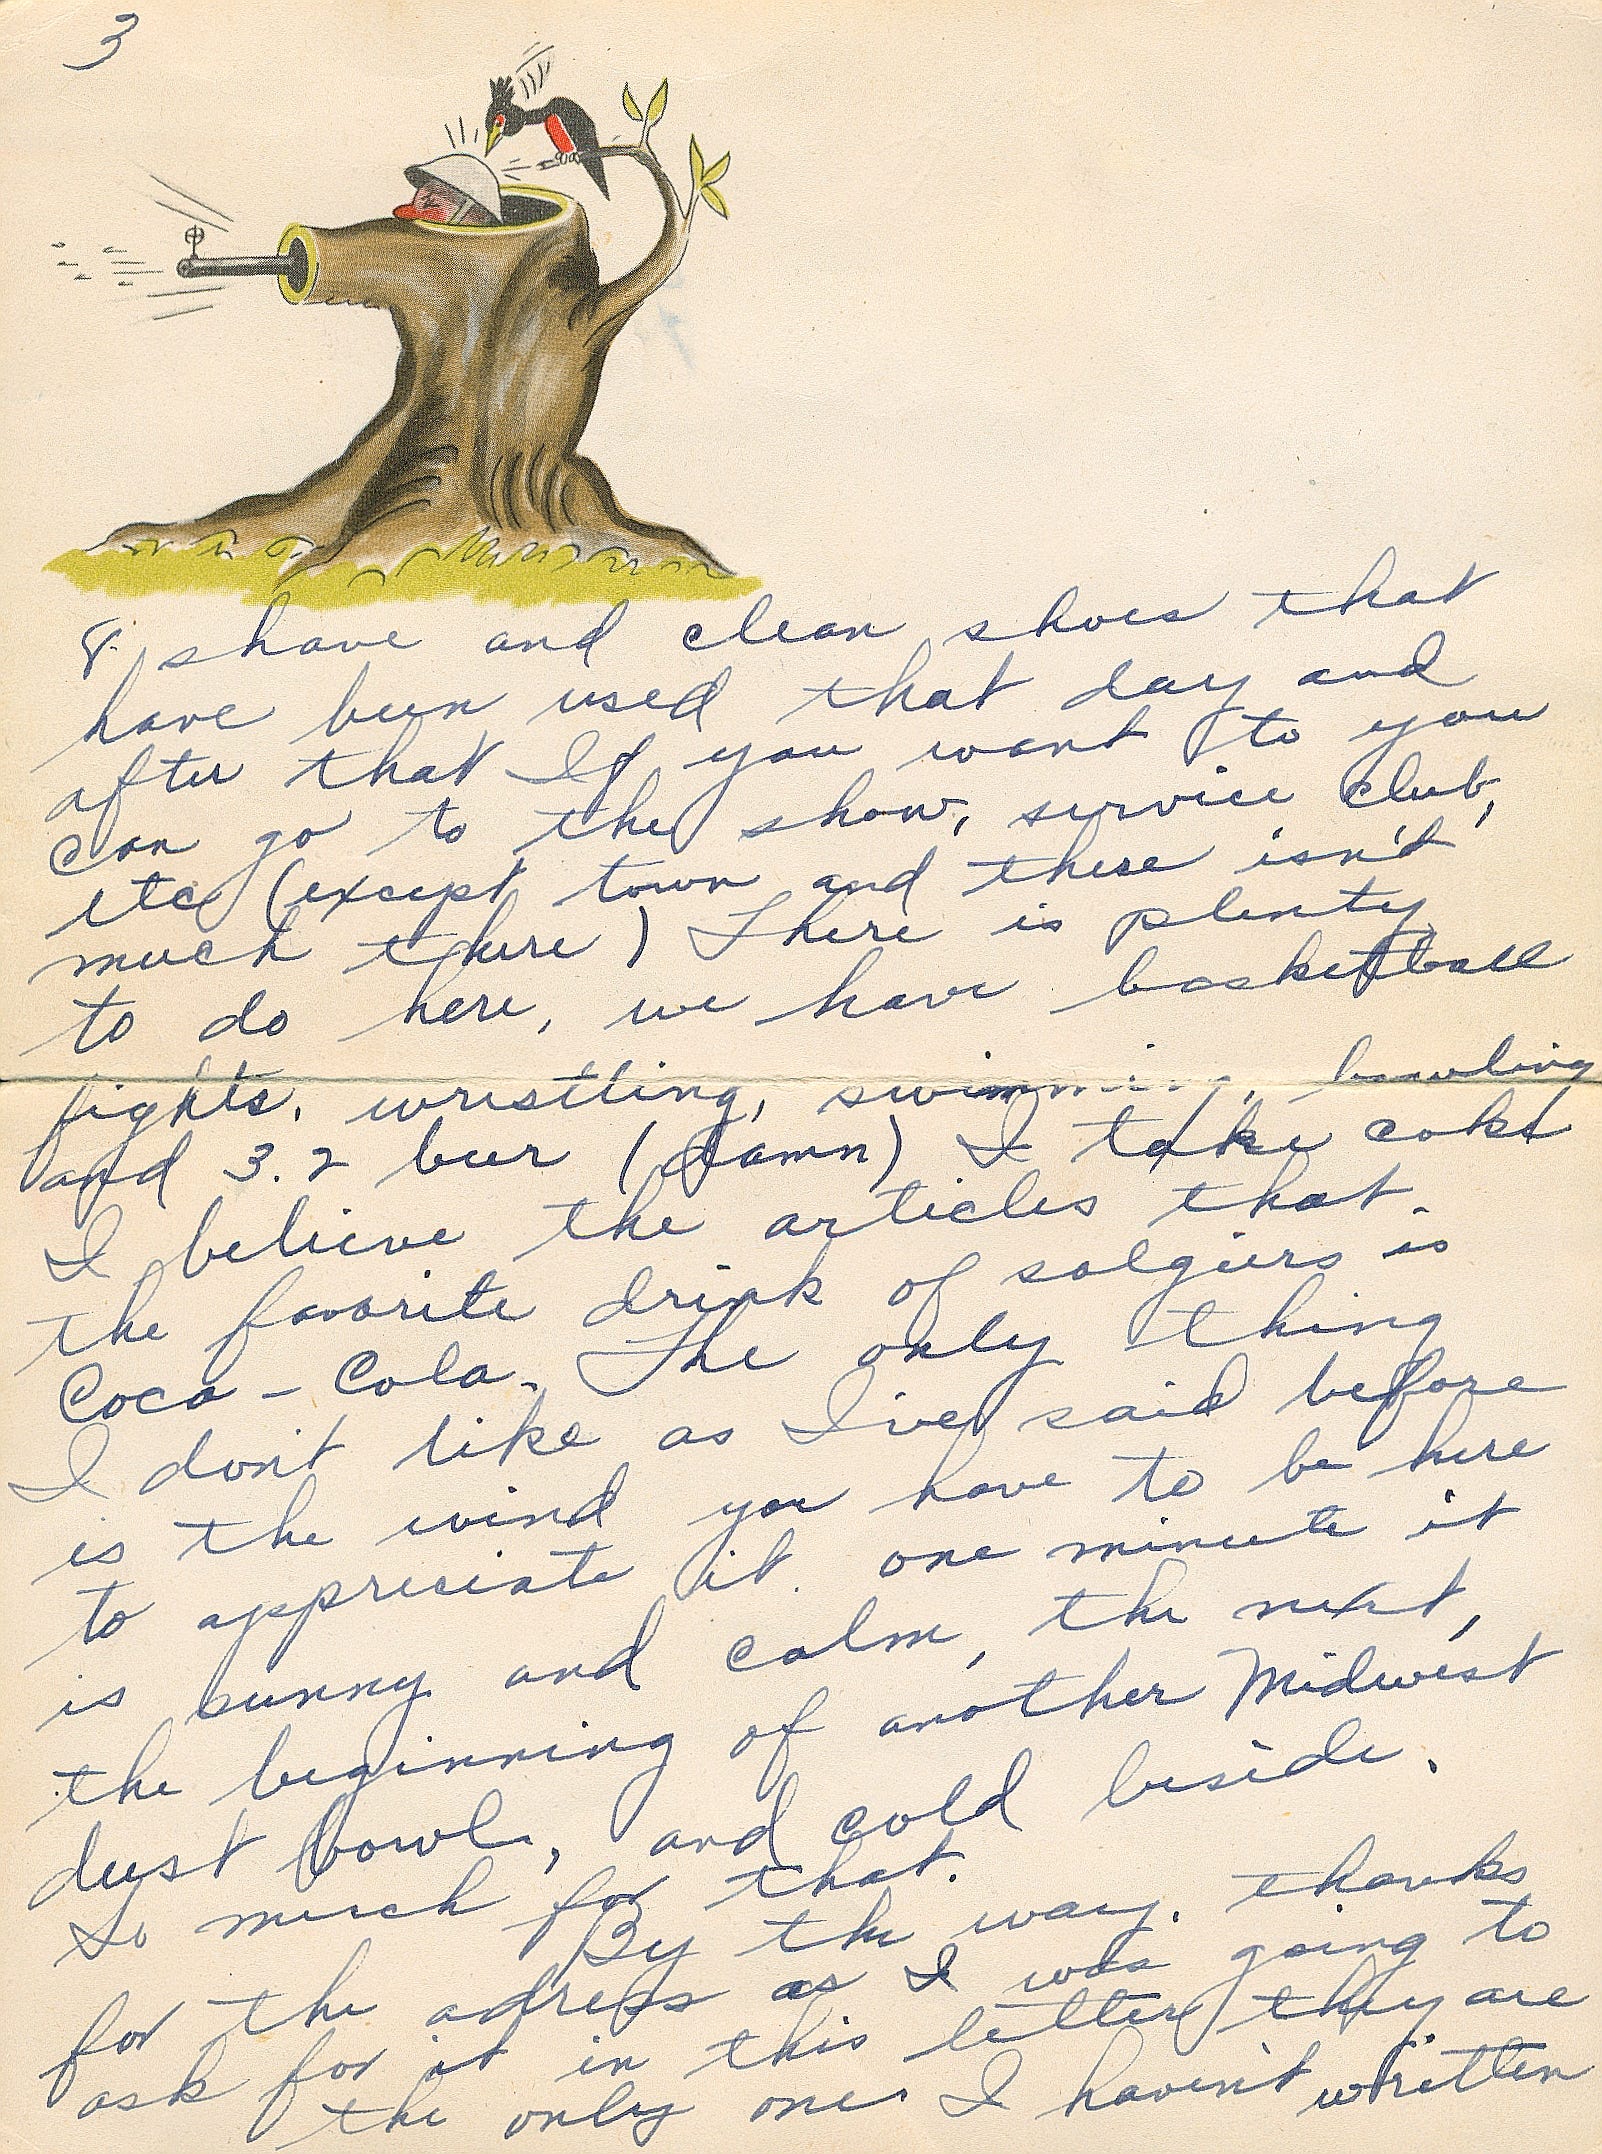 3
& shave and clean shoes that
have been used that day and
after that If you want to you
can go to the show, service club,
etc (except town and there isn't
much there) There is plenty
to do here, we have basketball
fights, wrestling, swimming, bowling
and 3.2 beer (damn) I take coke
I believe the articles that.
the favorite drink of solgiers is
Coca-Cola. The only thing
I don't like as I've said before
is the wind you have to be here
to appreciate it. one minute it
is sunny and calm, the next,
the beginning of another Midwest
dust bowl, and cold beside.
So much for that.
By the way. thanks
for the adress as I was going to
ask for it in this letter they are
the only one I haven't written